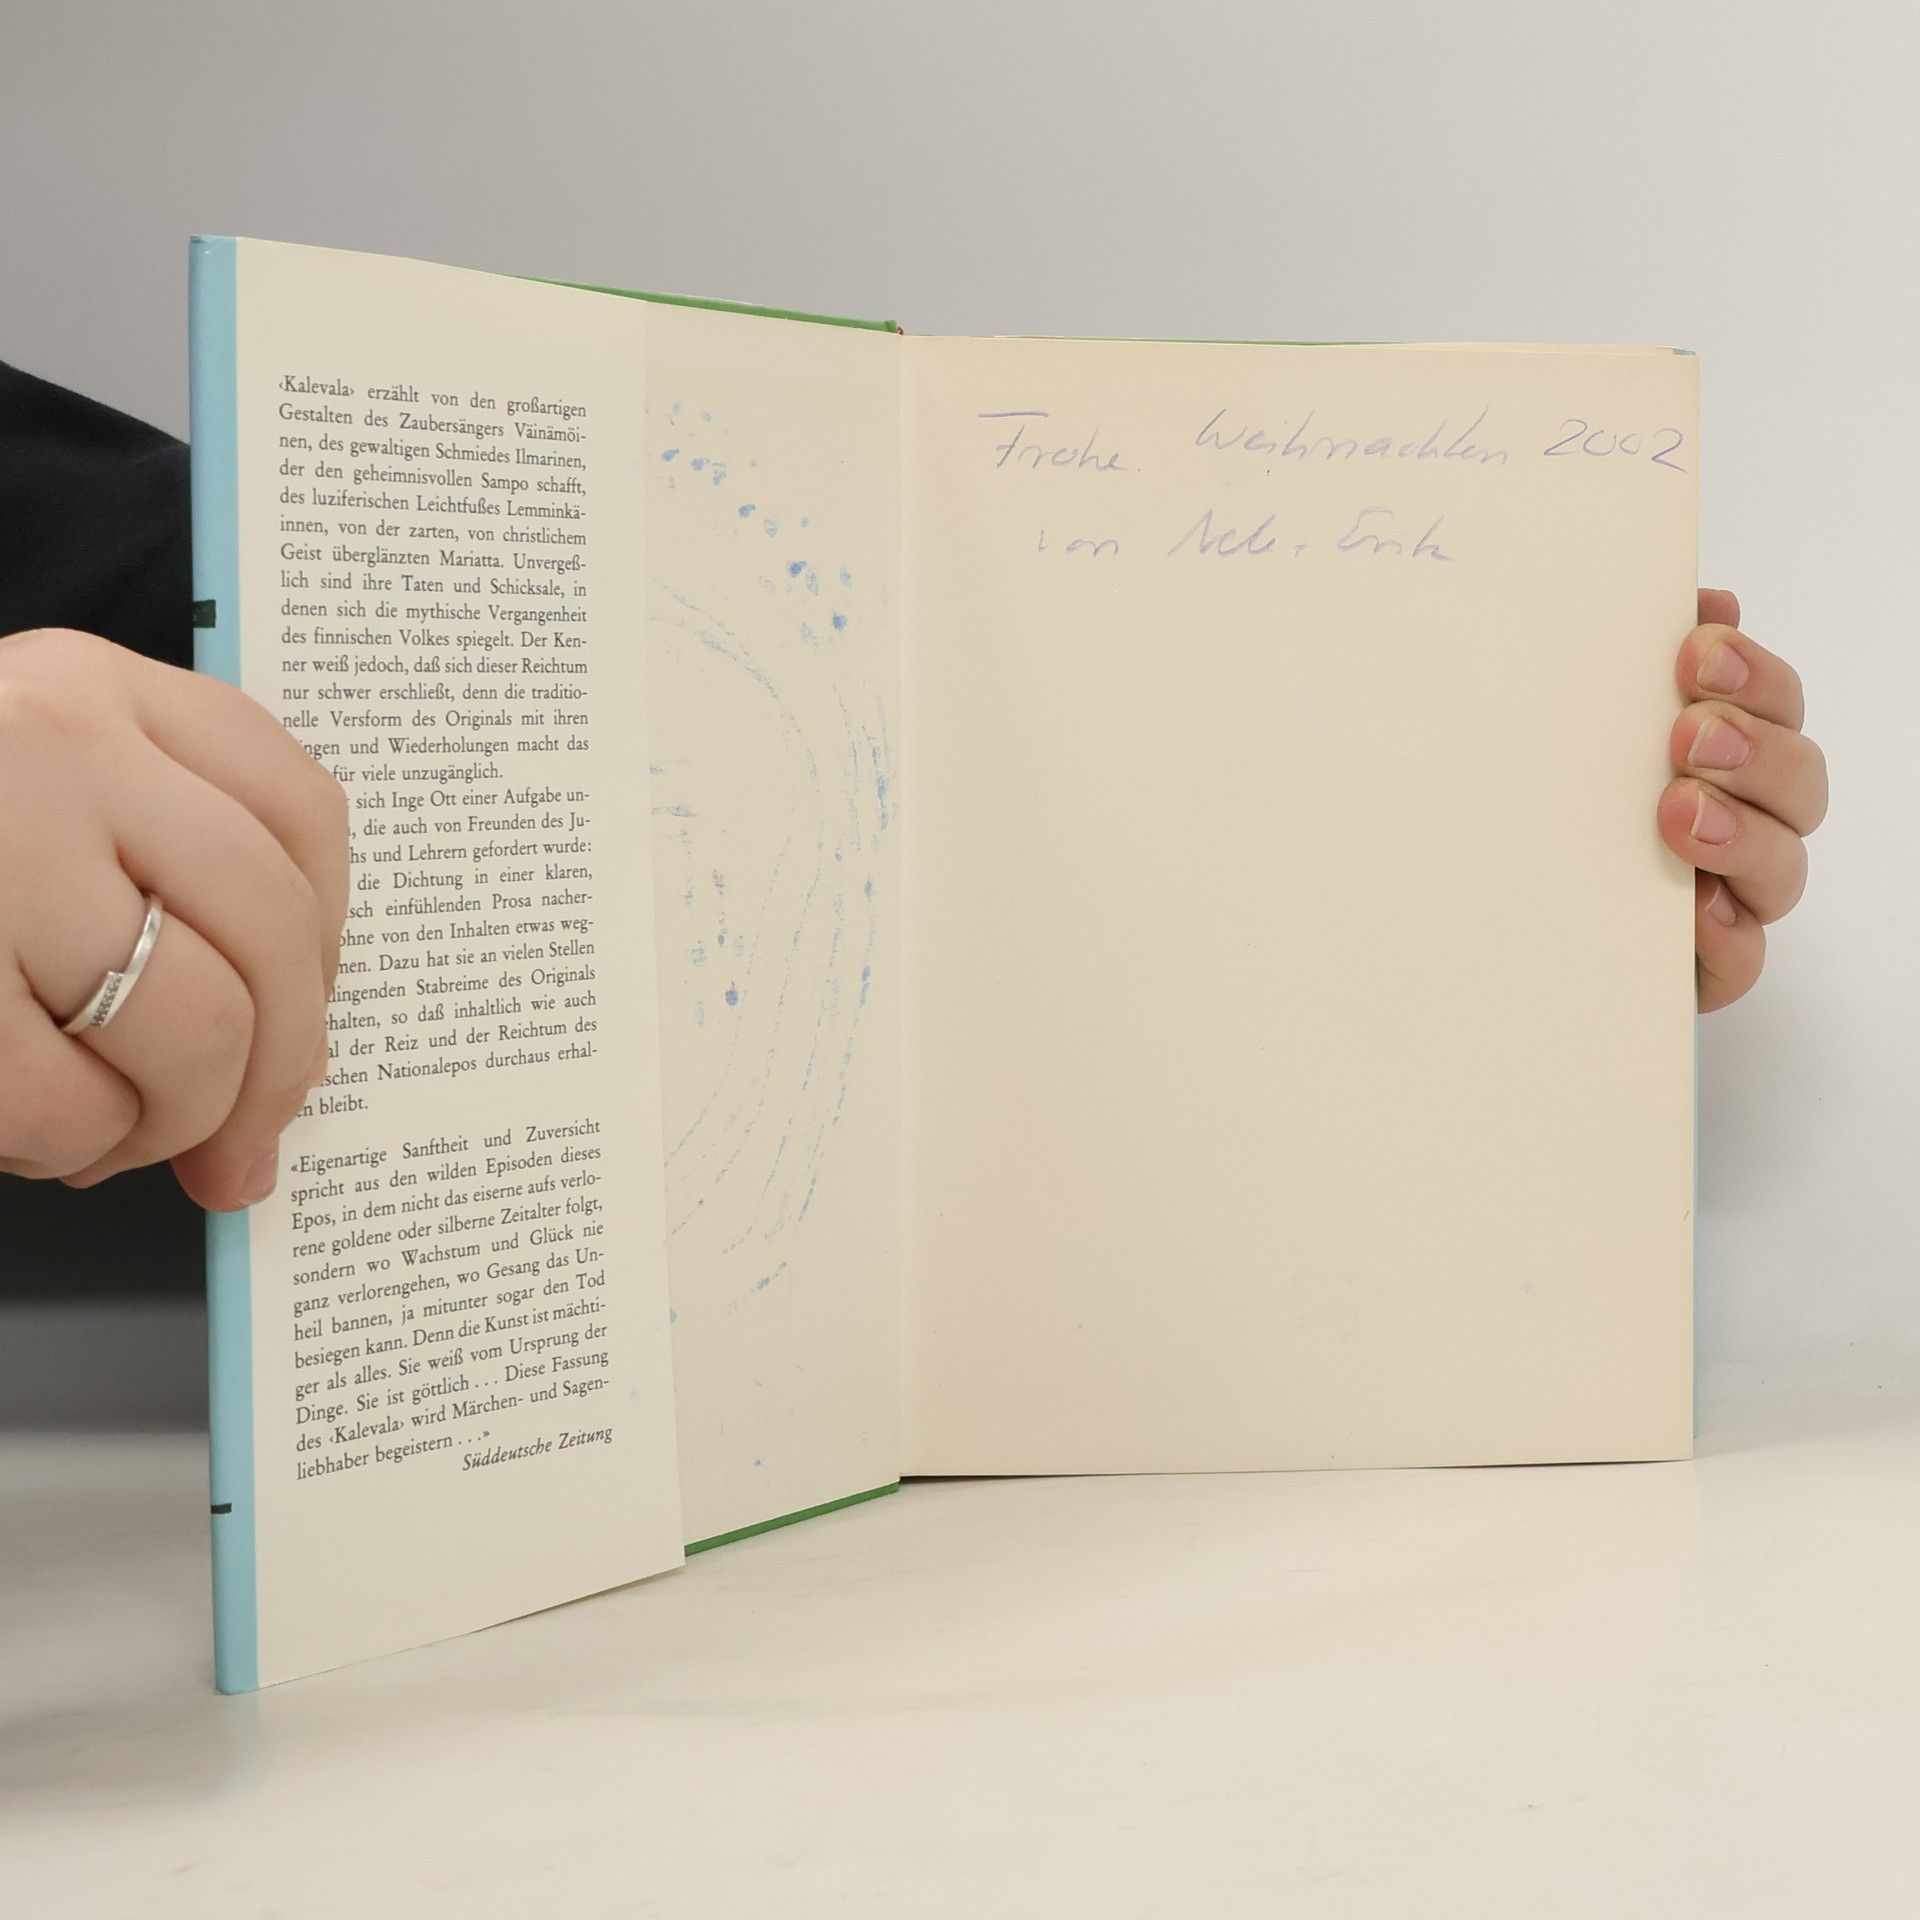 ‹Kalevala› erzählt von den großartigen
Gestalten des Zaubersängers Väinämöi-
nen, des gewaltigen Schmiedes Ilmarinen,
der den geheimnisvollen Sampo schafft,
des luziferischen Leichtfußes Lemminkä-
innen, von der zarten, von christlichem
Geist überglänzten Mariatta. Unvergeß-
lich sind ihre Taten und Schicksale, in
denen sich die mythische Vergangenheit
des finnischen Volkes spiegelt. Der Ken-
ner weiß jedoch, daß sich dieser Reichtum
nur schwer erschließt, denn die traditio-
nelle Versform des Originals mit ihren
und Wiederholungen macht das
für viele unzugänglich.
sich Inge Ott einer Aufgabe un-
die auch von Freunden des Ju-
und Lehrern gefordert wurde:
die Dichtung in einer klaren,
einfühlenden Prosa nacher-
ohne von den Inhalten etwas weg-
Dazu hat sie an vielen Stellen
Stabreime des Originals
so daß inhaltlich wie auch
der Reiz und der Reichtum des
Nationalepos durchaus erhal-
bleibt.
«Eigenartige Sanftheit und Zuversicht
spricht aus den wilden Episoden dieses
Epos, in dem nicht das eiserne aufs verlo-
rene goldene oder silberne Zeitalter folgt,
sondern wo Wachstum und Glück nie
ganz verlorengehen, wo Gesang das Un-
heil bannen, ja mitunter sogar den Tod
besiegen kann. Denn die Kunst ist mächti-
ger als alles. Sie weiß vom Ursprung der
Dinge. Sie ist göttlich . . . Diese Fassung
des ‹Kalevala› wird Märchen- und Sagen-
liebhaber begeistern . . .»
Süddeutsche Zeitung
Frohe Weihnachten 2002
von Nele + Erik